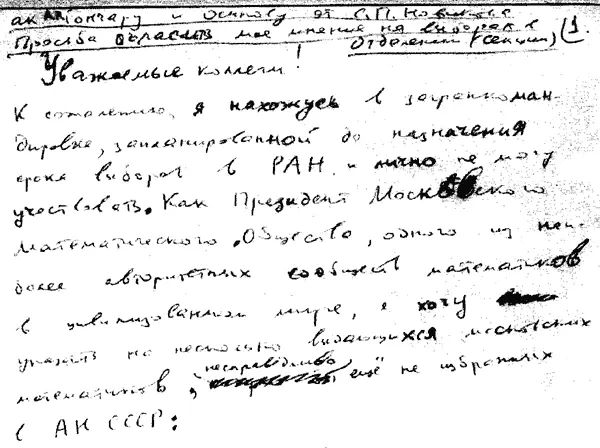 ак. Гончару и Осипову от С.П. Новикова
Просьба огласить мое мнение на выборах в
Отделении (секции) 1.
Уважаемые коллеги!
К сожалению, я нахожусь в загранкоман-
дировке, запланированной до назначения
срока выборов в РАН и лично не могу
участвовать. Как Президент Московского
математического Общества, одного из наи-
более авторитетных сообществ математиков
в цивилизованном мире, я хочу
указать на несколько выдающихся московских
математиков, несправедливо ещё не избранных
в АН СССР: